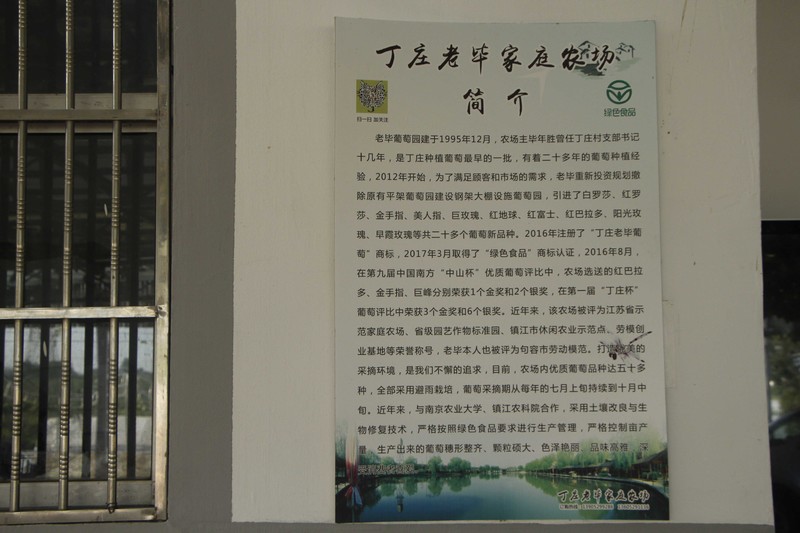 丁庄老毕家庭农场
简介
扫一扫 加关注
绿色食品
老毕葡萄园建于1995年12月，农场主毕年胜曾任丁庄村支部书记
十几年，是丁庄种植葡萄最早的一批，有着二十多年的葡萄种植经
验，2012年开始，为了满足顾客和市场的需求，老毕重新投资规划撤
除原有平架葡萄园建设钢架大棚设施葡萄园，引进了白罗莎、红罗
莎、金手指、美人指、巨玫瑰、红地球、红富士、红巴拉多、阳光玫
瑰、早霞玫瑰等共二十多个葡萄新品种。2016年注册了“丁庄老毕葡
萄”商标，2017年3月取得了“绿色食品”商标认证，2016年8月，
在第九届中国南方“中山杯”优质葡萄评比中，农场选送的红巴拉
多、金手指、巨峰分别荣获1个金奖和2个银奖，在第一届“丁庄杯”
葡萄评比中荣获3个金奖和6个银奖。近年来，该农场被评为江苏省示
范家庭农场、省级园艺作物标准园、镇江市休闲农业示范点、劳模创
业基地等荣誉称号，老毕本人也被评为句容市劳动模范。打造 美的
采摘环境，是我们不懈的追求，目前，农场内优质葡萄品种达五十多
种，全部采用避雨栽培，葡萄采摘期从每年的七月上旬持续到十月中
旬。近年来，与南京农业大学、镇江农科院合作，采用土壤改良与生
物修复技术，严格按照绿色食品要求进行生产管理，严格控制亩产
量，生产出来的葡萄穗形整齐、颗粒硕大、色泽艳丽、品味高雅，深
丁庄老毕家庭农场